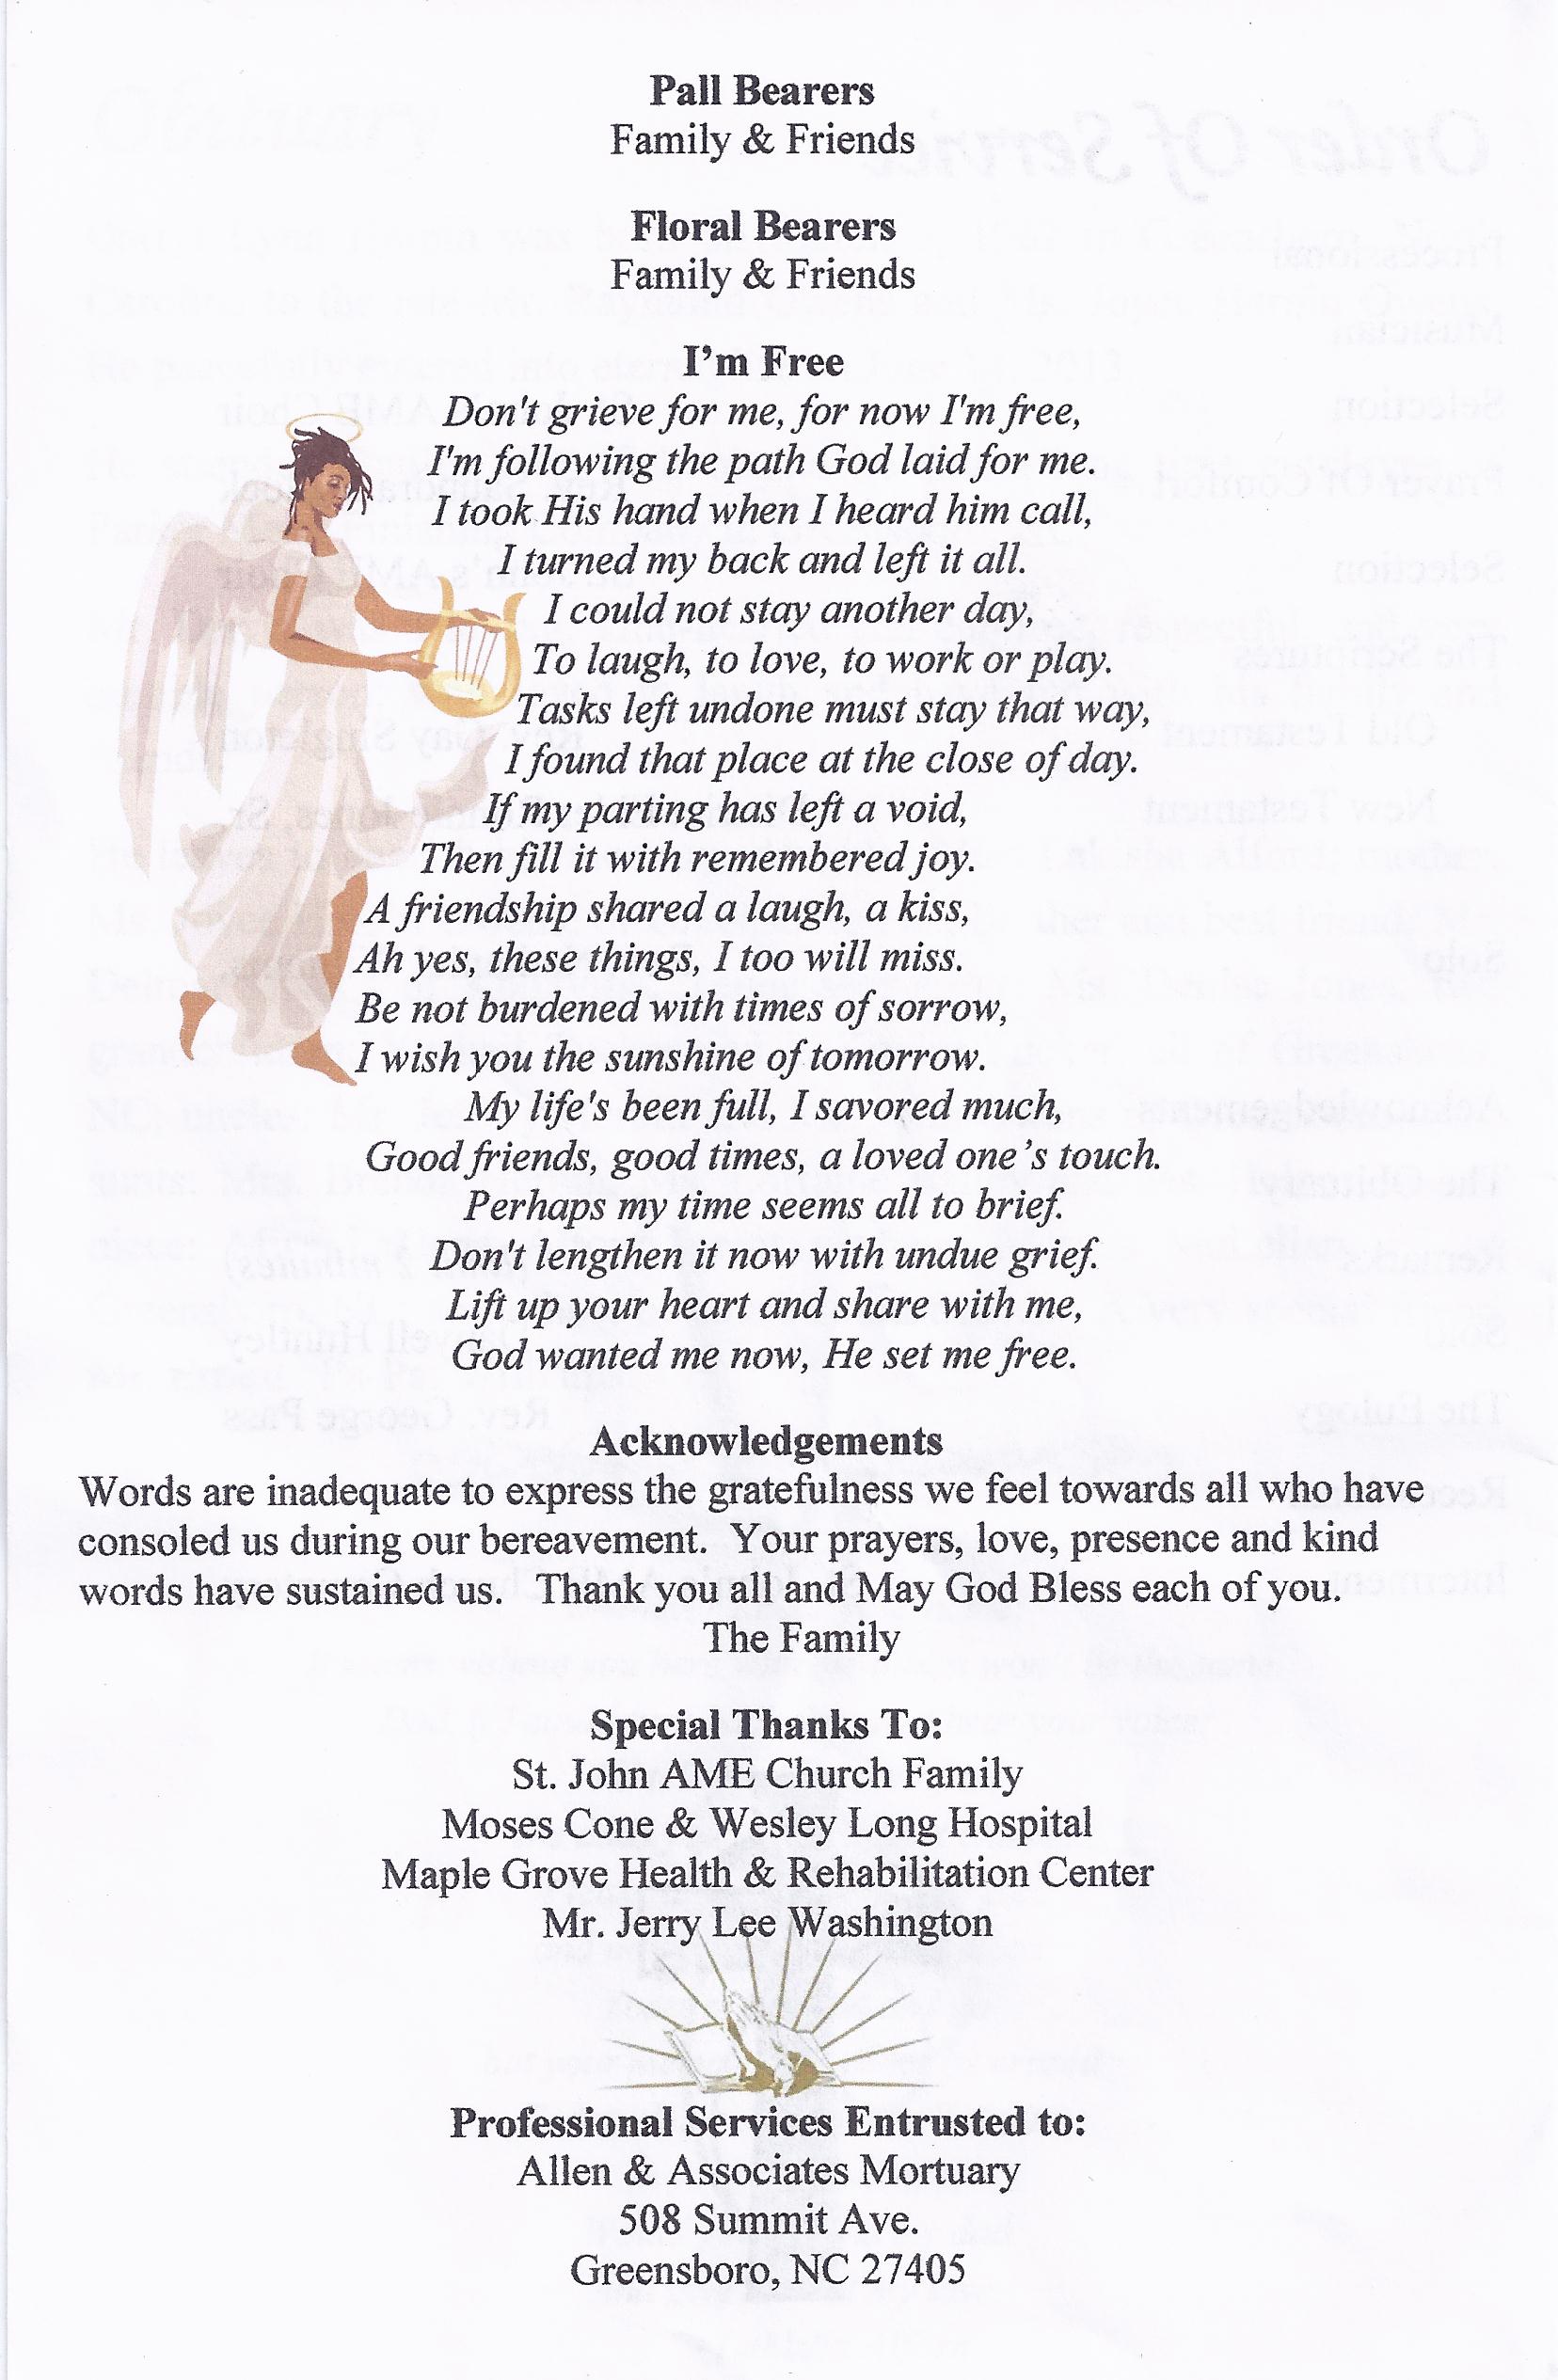 Pall Bearers
Family & Friends
Floral Bearers
Family & Friends
I'm Free
Don't grieve for me, for now I'm free,
I'm following the path God laid for me.
I took His hand when I heard him call,
I turned my back and left it all.
I could not stay another day,
To laugh, to love, to work or play.
Tasks left undone must stay that way,
I found that place at the close of day.
If my parting has left a void,
Then fill it with remembered joy.
A friendship shared a laugh, a kiss,
Ah yes, these things, I too will miss.
Be not burdened with times of sorrow,
I wish you the sunshine of tomorrow.
My life's been full, I savored much,
Good friends, good times, a loved one's touch.
Perhaps my time seems all to brief.
Don't lengthen it now with undue grief.
Lift up your heart and share with me,
God wanted me now, He set me free.
Acknowledgements
Words are inadequate to express the gratefulness we feel towards all who have
consoled us during our bereavement. Your prayers, love, presence and kind
words have sustained us. Thank you all and May God Bless each of you.
The Family
Special Thanks To:
St. John AME Church Family
Moses Cone & Wesley Long Hospital
Maple Grove Health & Rehabilitation Center
Mr. Jerry Lee Washington
Professional Services Entrusted to:
Allen & Associates Mortuary
508 Summit Ave.
Greensboro, NC 27405